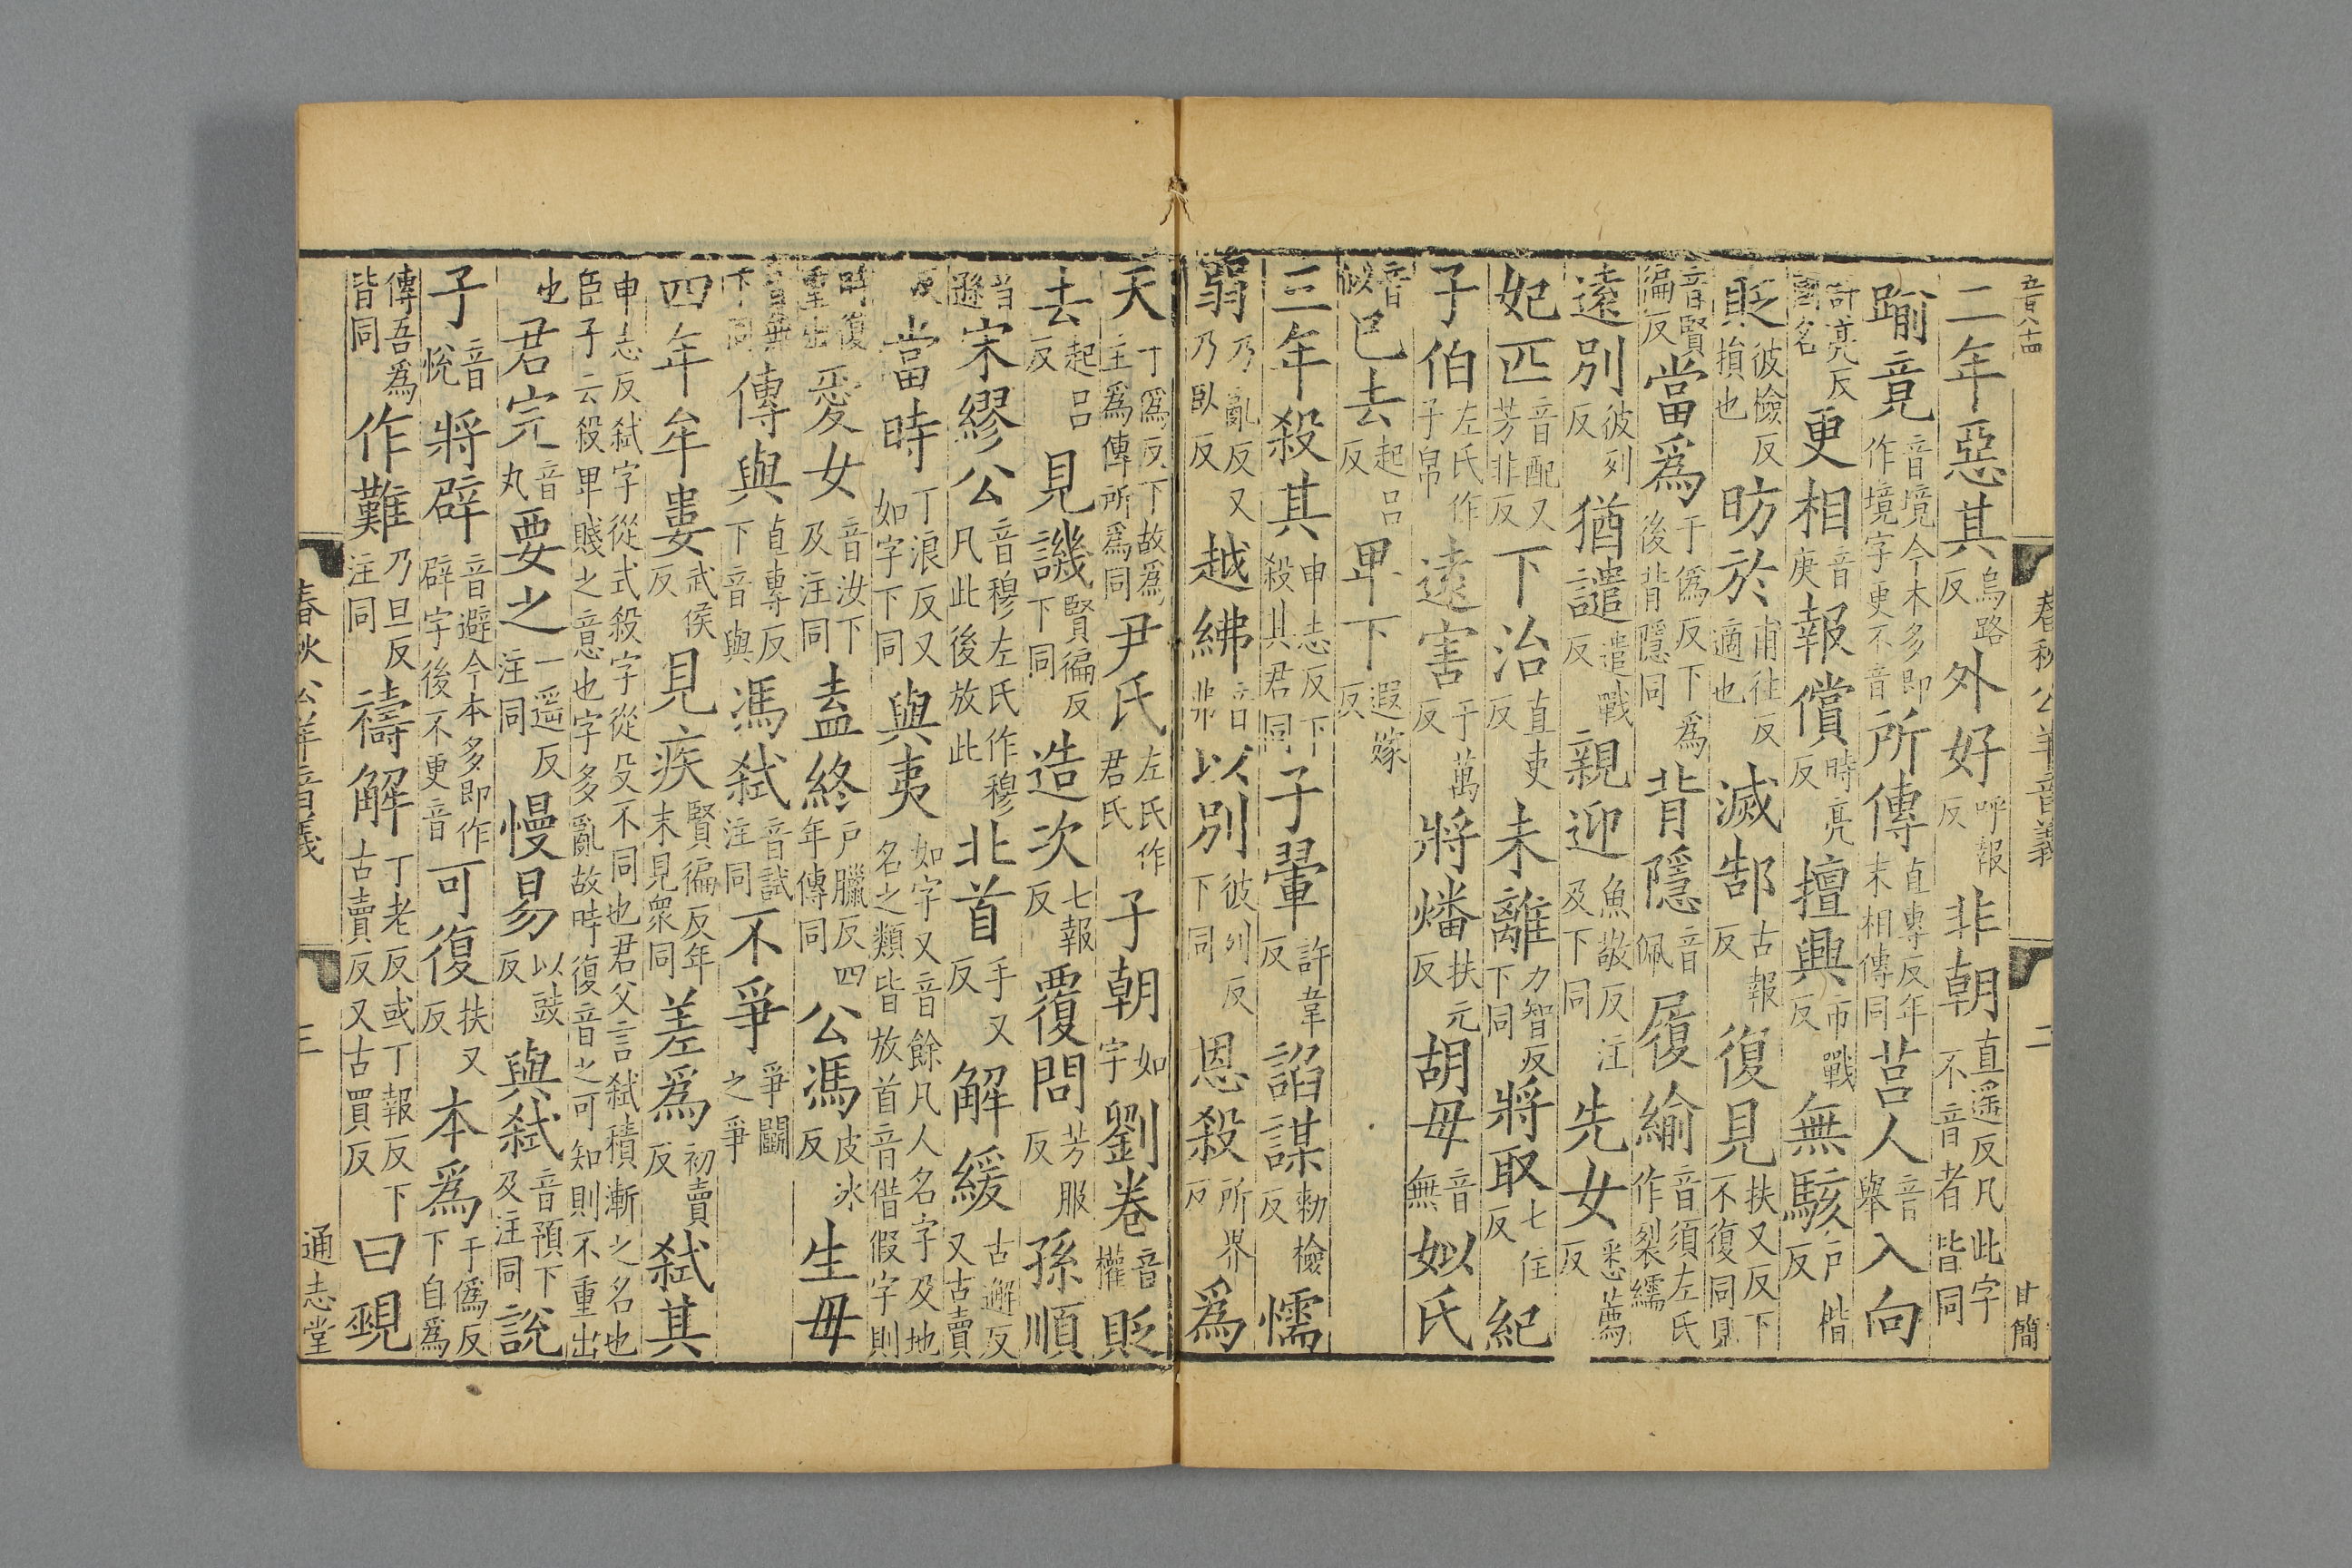 五百八十四 春秋公羊音義 二 甘簡
二年惡其烏路反外好呼報反非朝直遥反凡此字不音者皆同
踰竟音境今本多即作境字更不音所傳直專反年末相傳同莒人音舉入向
許亮反國名更相音庚報償時亮反擅興市戰反無駭戶楷反
貶彼檢反損也昉於甫往反適也滅郜古報反復見扶又反下不復同見
音賢徧反當爲于僞反下爲後背隱同背隱音佩履緰音須左氏作裂繻
遠別彼列反猶譴遣戰反親迎魚敬反注及下同先女悉薦反
妃匹音配又芳非反下治直吏反未離力智反下同將取七住反紀
子伯左氏作子帛遠害于萬反將燔扶元反胡毋音無姒氏
音似已去起呂反卑下遐嫁反
三年殺其申志反下殺其君同子翬許韋反諂謀勑檢反懦
弱乃亂反又乃臥反越紼音弗以別彼列反下同恩殺所界反爲
天于爲反下故爲主爲傳所爲同尹氏左氏作君氏子朝如字劉卷音權貶
去起呂反見譏賢徧反下同造次七報反覆問芳服反孫順
遜宋繆公音穆左氏作穆凡此後放此北首手又反解緩古邂反又古賣
反當時丁浪反又如字下同與夷如字又音餘凡人名字及地名之類皆放首音借假字則
時復重出愛女音汝下及注同盍終戶臘反四年傳同公馮皮冰反生毋
音無下同傳與直專反下音與馮弑音試注同不爭爭鬬之爭
四年牟婁武侯反見疾賢徧反年末見衆同差爲初賣反弑其
申志反弑字從式殺字從殳不同也君父言弑積漸之名也臣子云殺卑賤之意也字多亂故時復音之可知則不重出
也君完音丸要之一遥反注同慢易以豉反與弑音預下及注同說
子音悅將辟音避今本多即作辟字後不更音可復扶又反本爲于僞反下自爲
傳吾爲皆同作難乃旦反注同禱解丁老反或丁報反下古賣反又古買反曰覡
春秋公羊音義 三 通志堂